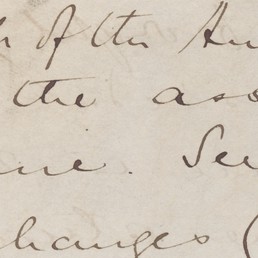 of the
the ass
. See
changes (